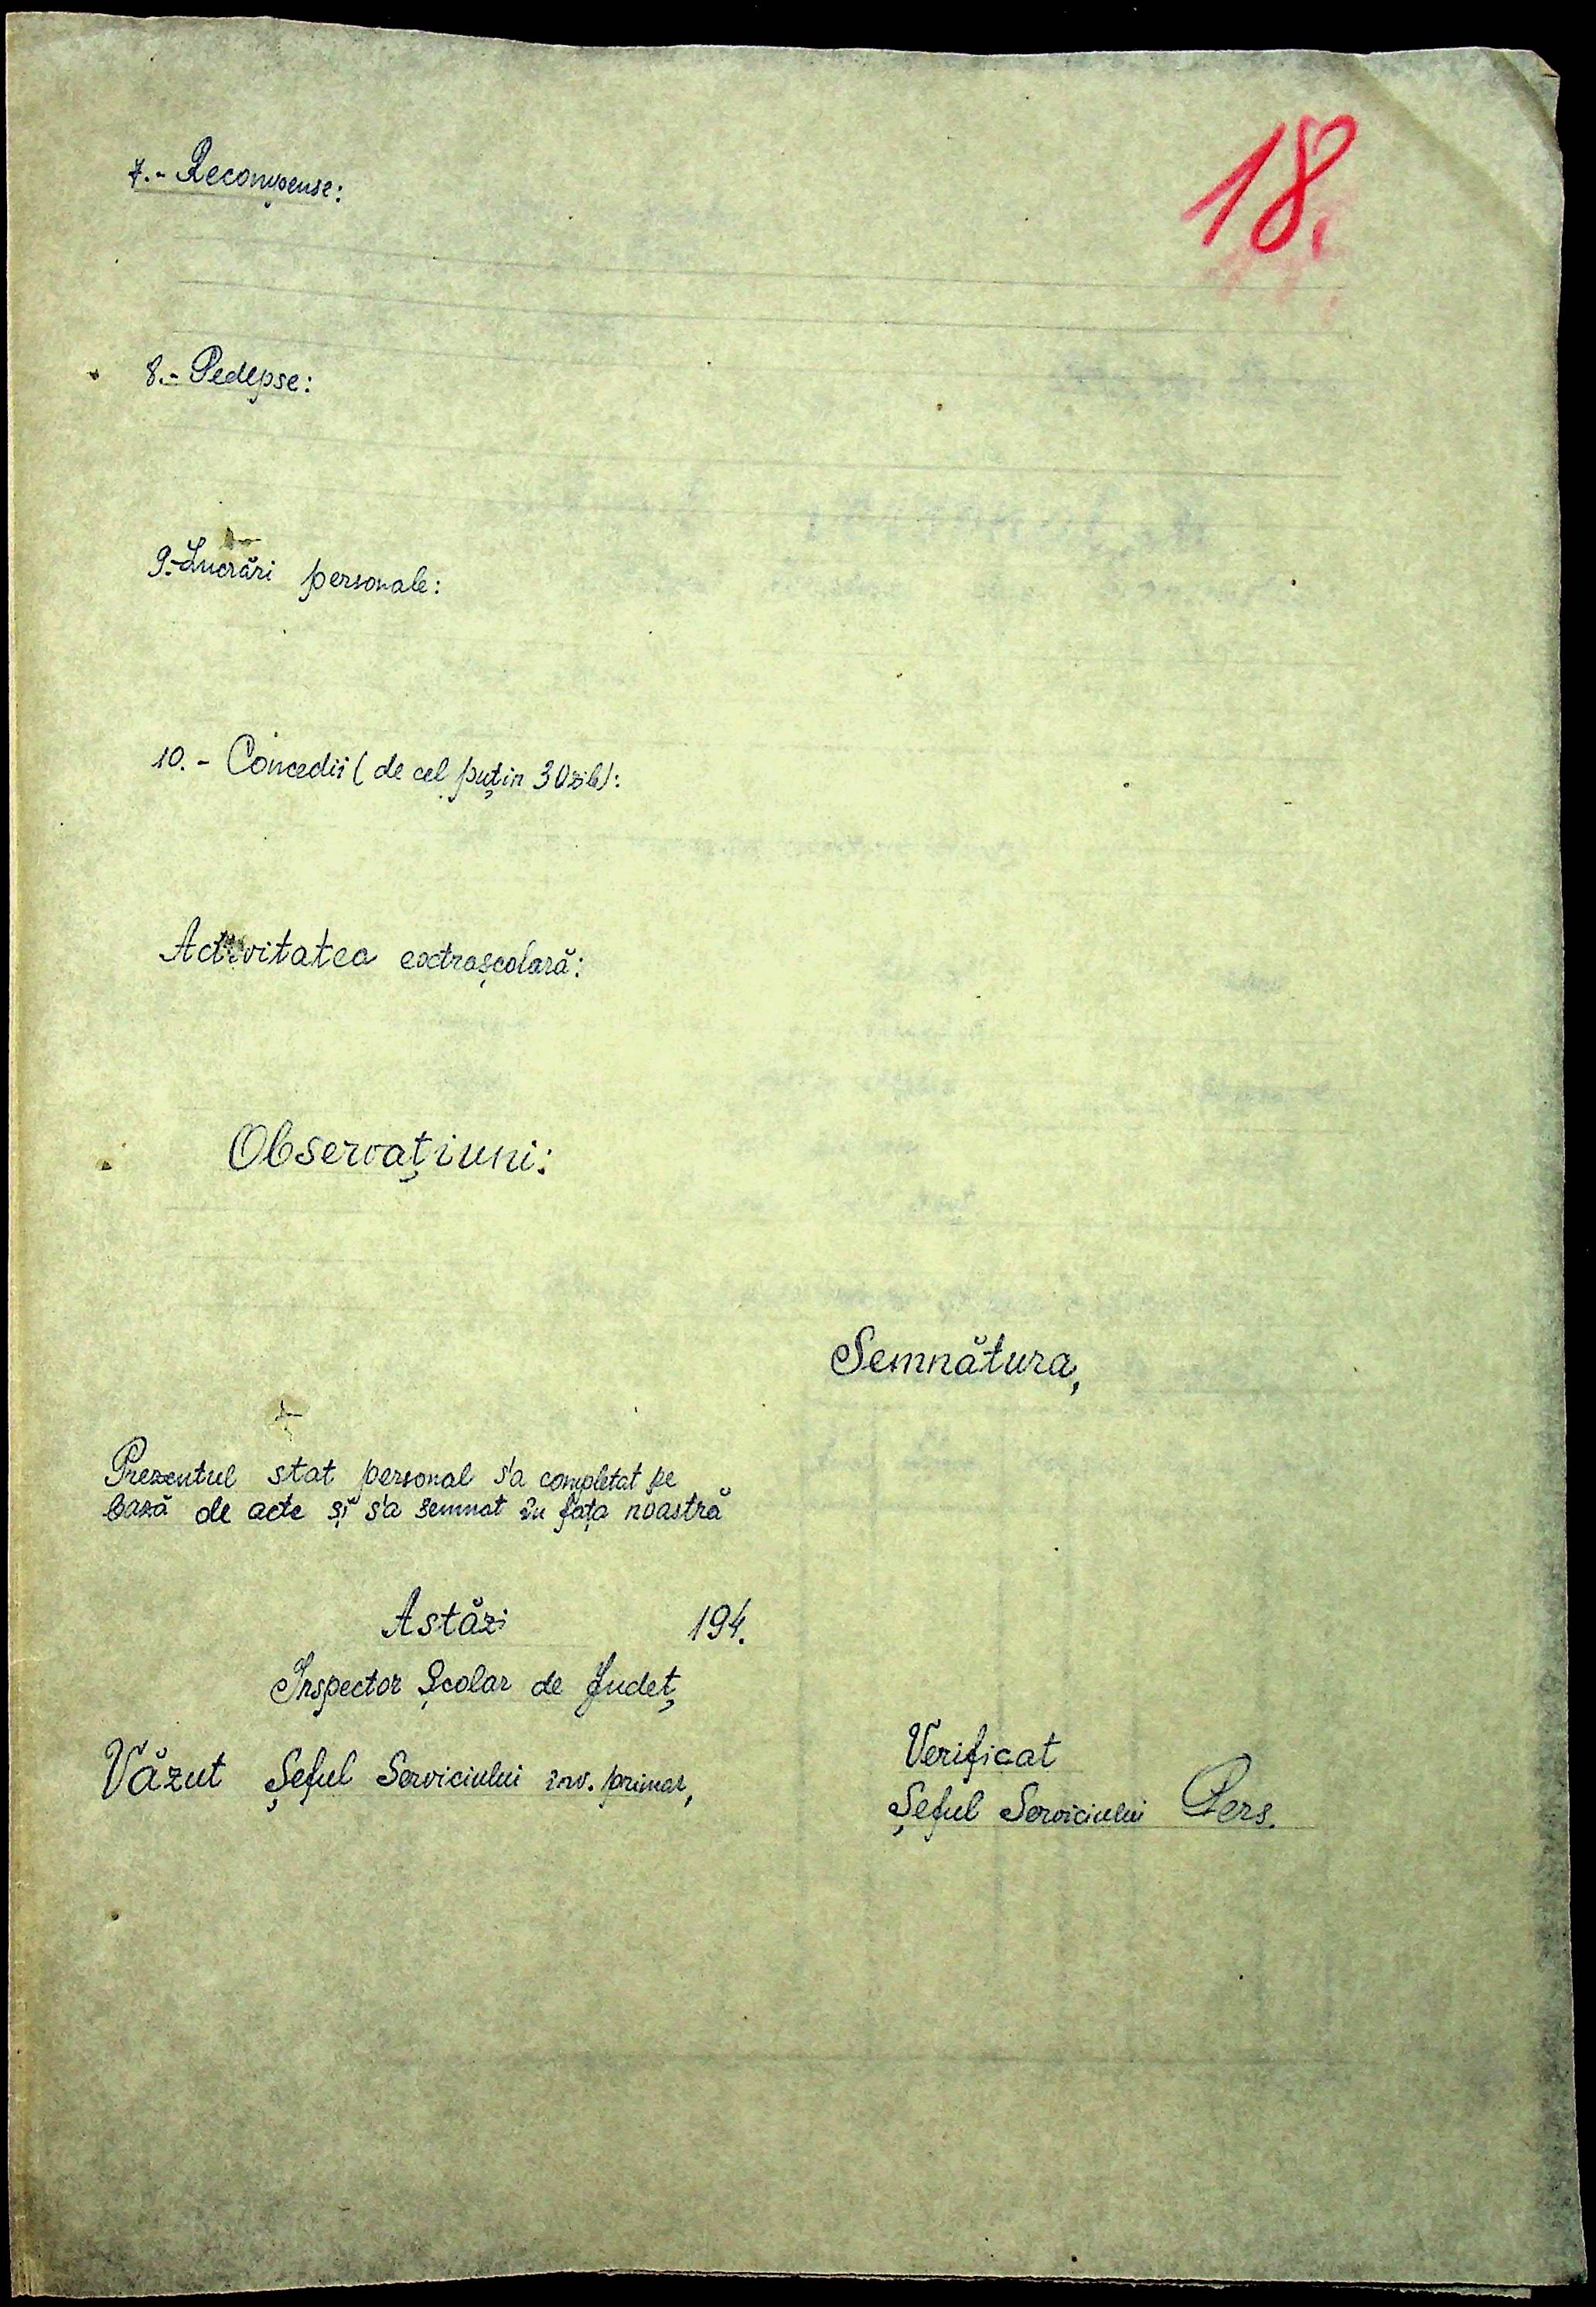 18.
7.- Recompense:
8.- Pedepse:
9.- Lucrări personale:
10.- Concedii (de cel puțin 30 zile):
Activitatea extrașcolară:
Observațiuni:
Semnătura,
Prezentul stat personal s'a completat pe
bază de acte și s'a semnat în fața noastră
Astăzi 194.
Inspector Școlar de Județ,
Văzut Șeful Serviciului inv. primar,
Verificat
Șeful Serviciului Pers.